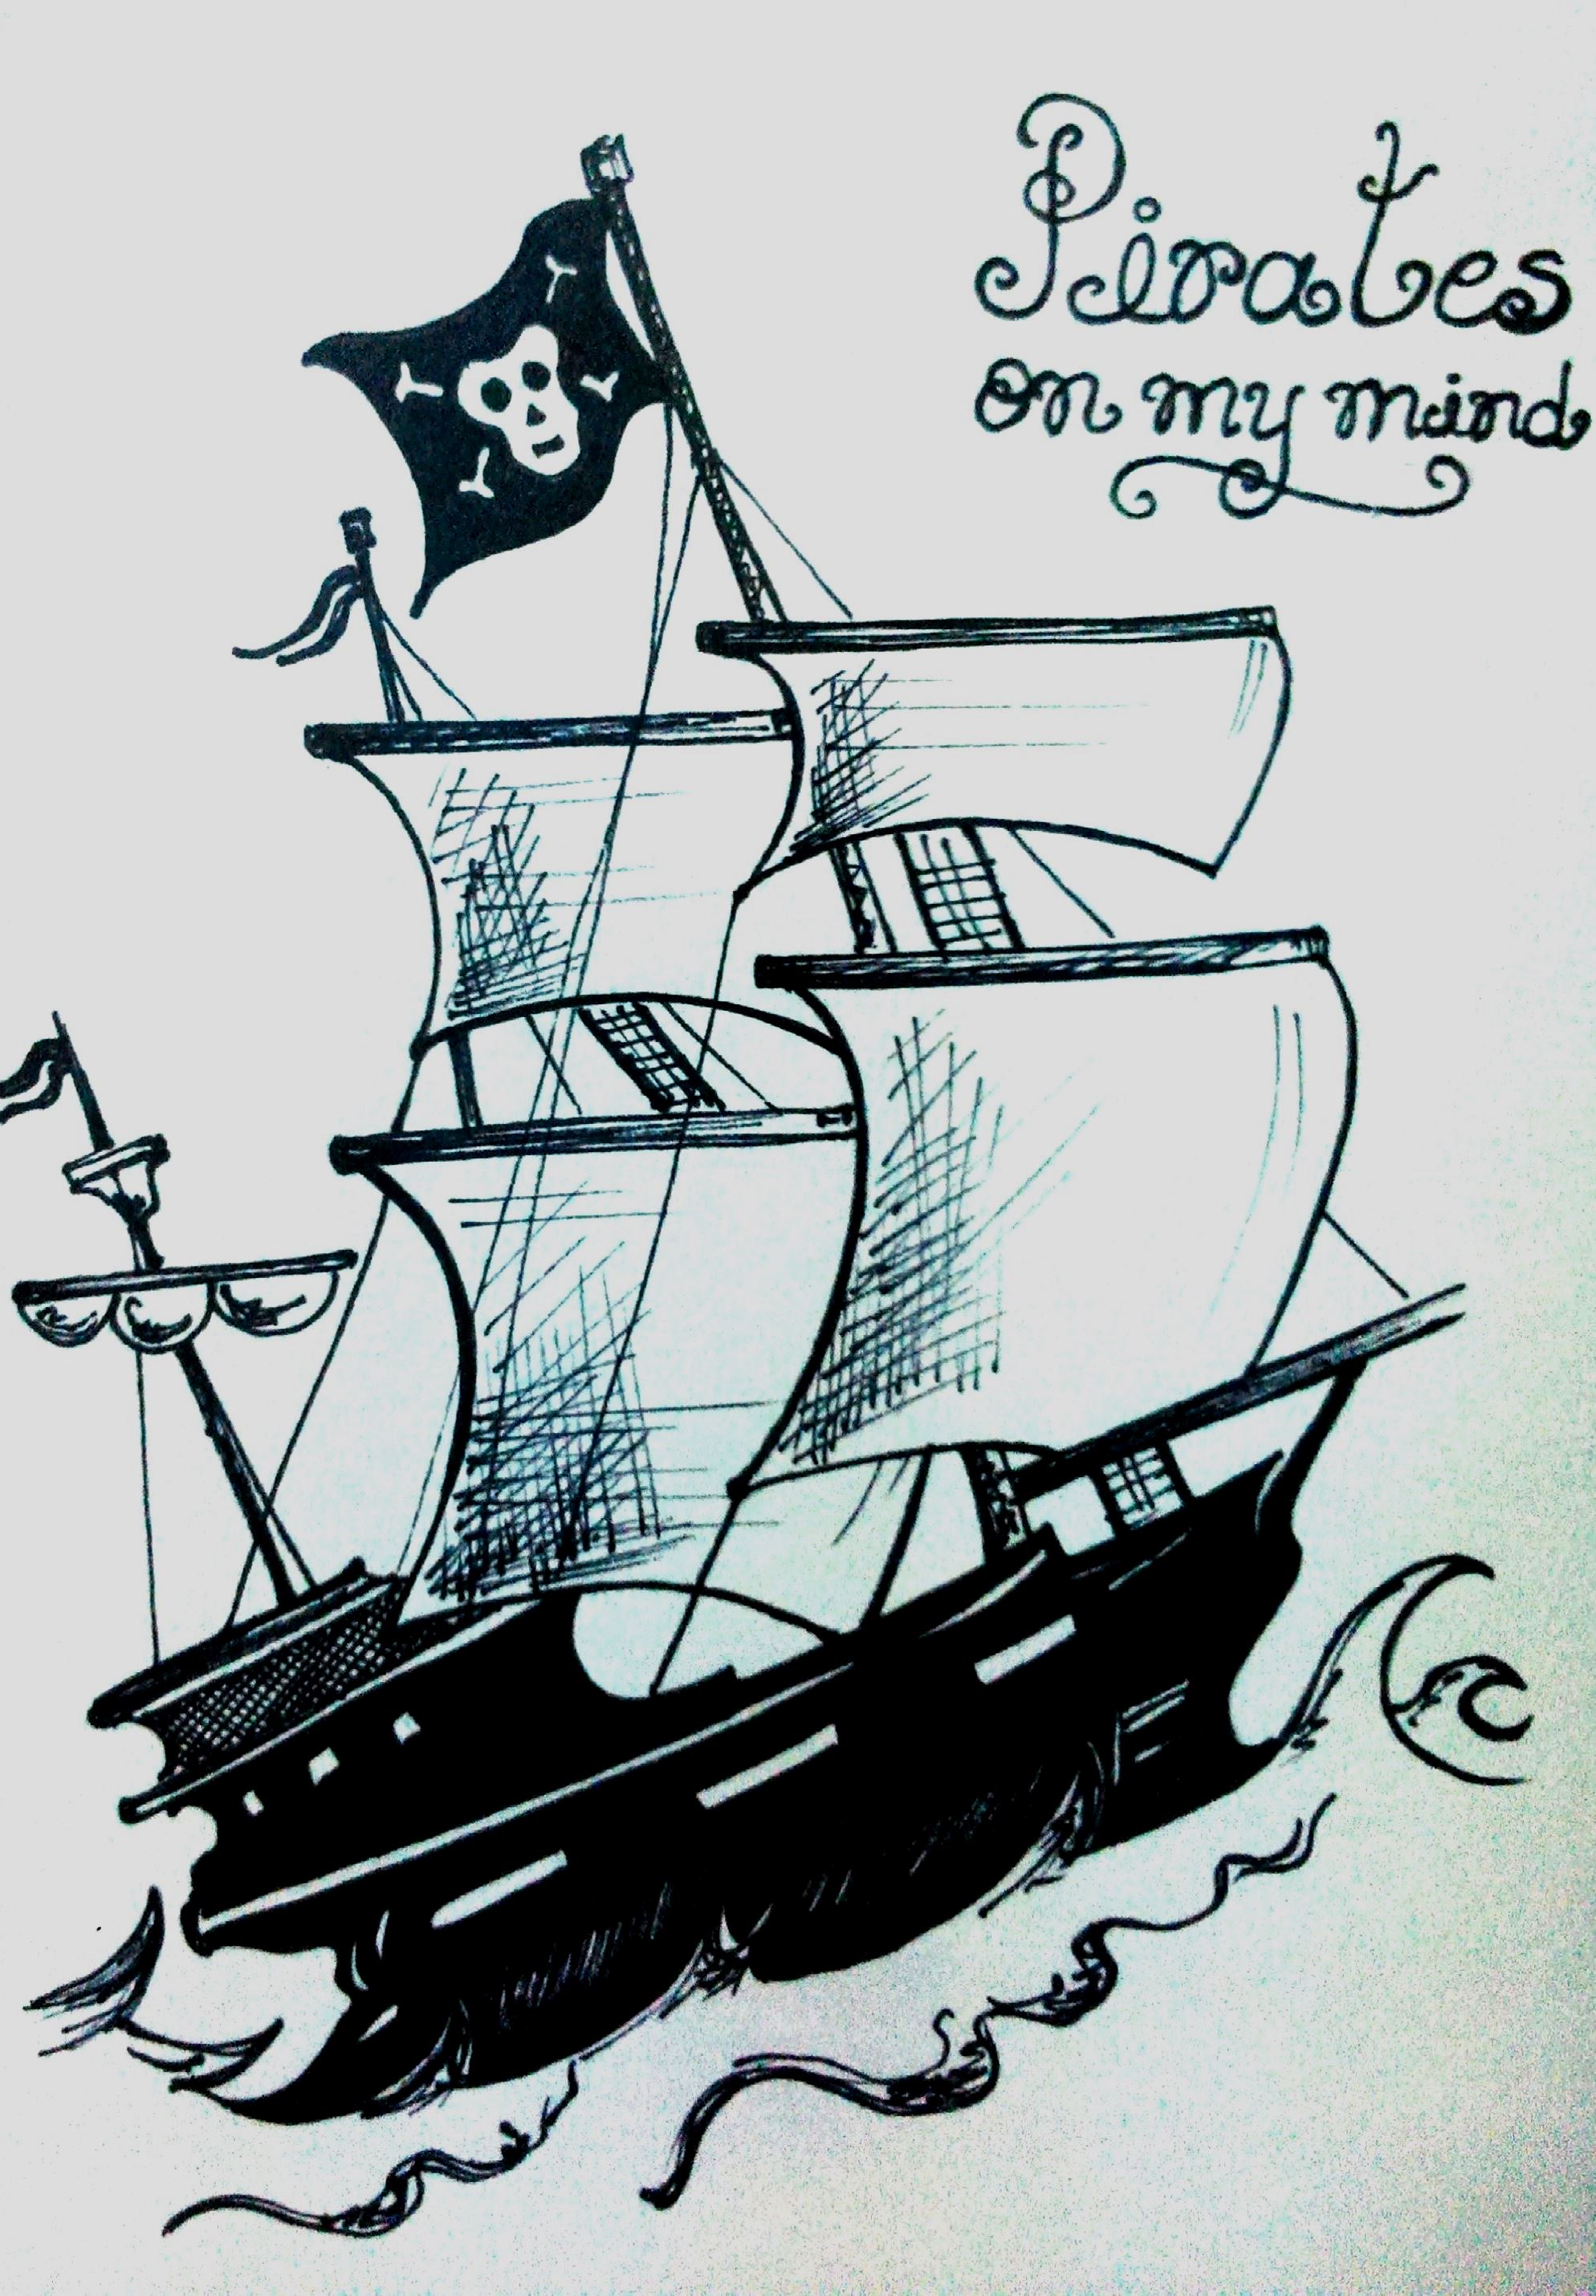 Pirates
on my mind